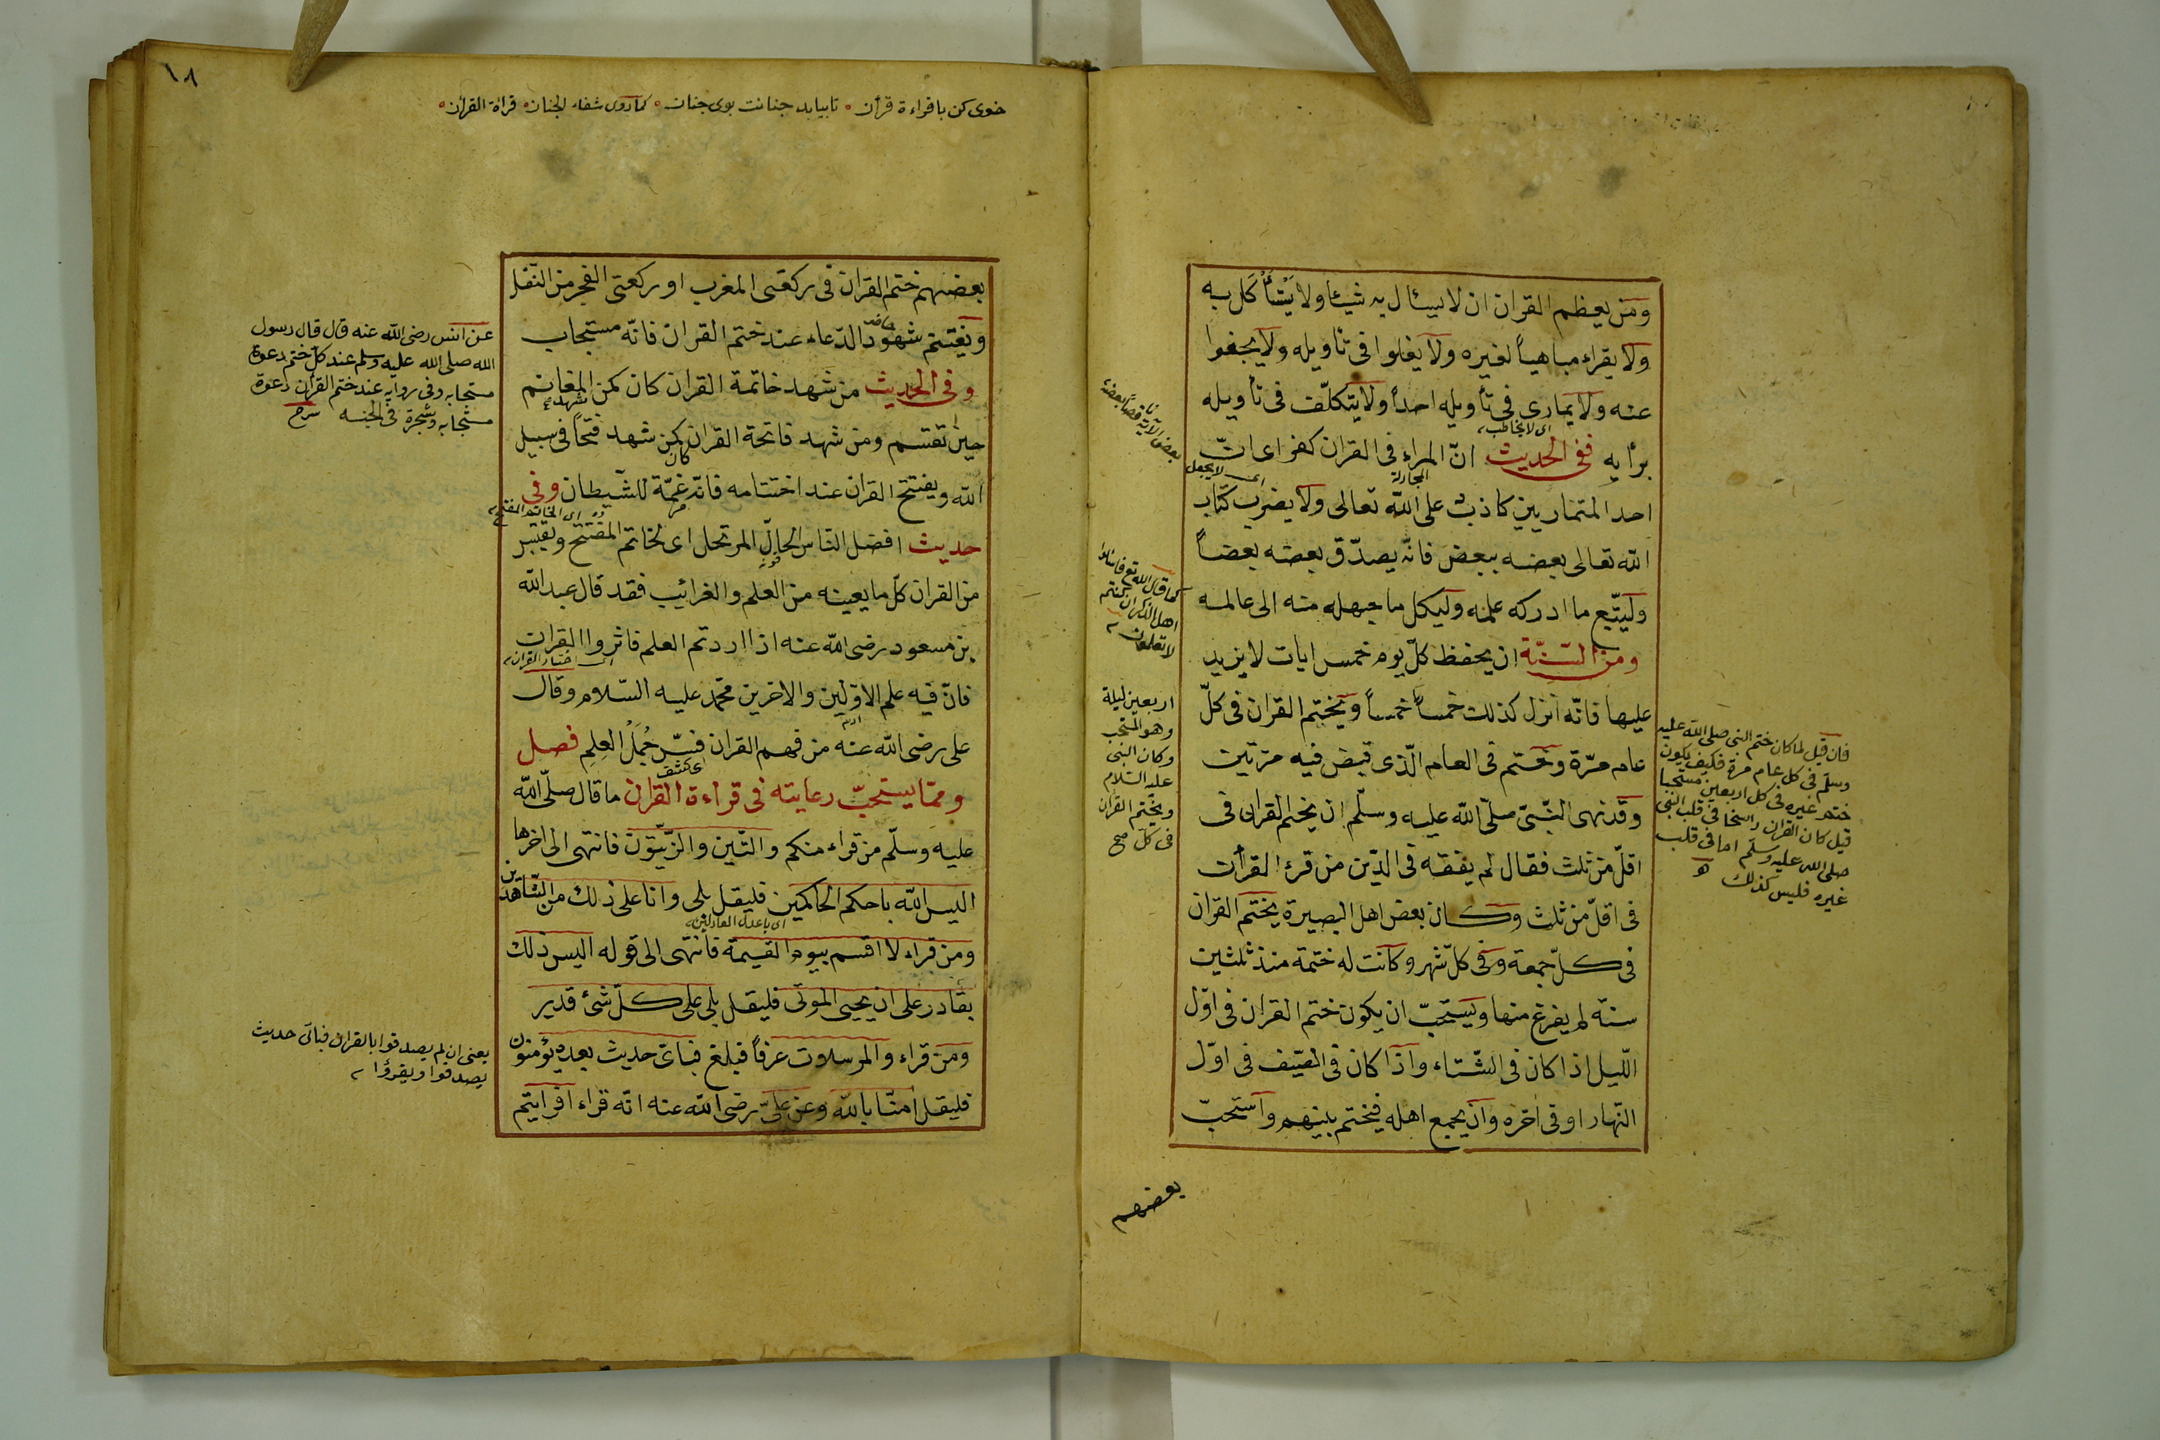 ومن يعظم القران ان لا يسئال به شيئا ولا يتأكل به
ولا يقراء مباهيا لغيره ولا يغلوا فى تاويله ولا يجفوا
عنه ولا يمارى فى تأويله احدا ولا يتكلّف فى تأويله
برأيه ففى الحديث انّ المراء فى القران كفر اى انّ
احد المتماريين كاذب على اللّه تعالى ولا يضرب كتاب
اللّه تعالى بعضه ببعض فانّه يصدّق بعضه بعضاً
وليتّبع ما ادركه علمه وليكل ما جهله منه الى عالمه
ومن السّنّة ان يحفظ كلّ يوم خمس ايات لا يزيد
عليها فانّه انزل كذلك خمساً خمساً ويختم القران فى كلّ
عام مرّة وختم فى العام الّذى قبض فيه مرّتين
وقد نهى النّبىّ صلّى اللّه عليه وسلّم ان يختم القران فى
اقلّ من ثلث فقال لم يفقه فى الدّين من قرء القران
فى اقلّ من ثلث وكان بعض اهل البصيرة يختم القران
فى كلّ جمعة وفى كلّ شهر وكانت له ختمة منذ ثلثين
سنة لم يفرغ منها ويستحبّ ان يكون ختم القران فى اوّل
اللّيل اذا كان فى الشّتاء واذا كان فى الصّيف فى اوّل
النّهار او فى اخره وان يجمع اهله فيختم بينهم واستحبّ
بعضهم
اى لا يخاطب
المجادلة
اى لا يجعل
كما قال الله تع فاسئلوا
اهل الذكر ان كنتم
لا تعلمون
اربعين ليلة
وهو المستحب
وكان النبى
عليه السلام
ويختم القران
فى كل صح
فان قيل لما كان ختم النبى صلى الله عليه
وسلم فى كل عام مرة فكيف يكون
ختم غيره فى كل اربعين مستحبا
قيل كان القران راسخا فى قلب النبى
صلى الله عليه وسلم اما فى قلب
غيره فليس كذلك
١٨
خوى كن باقراءة قرأن تا بيابد جنانت بوى جنان كما روى شفاء الجنان قراة القران
بعضهم ختم القران فى ركعتى المغرب او ركعتى الفجر من النّفل
ويغتنم شهود الدّعاء عند ختم القران فانّه مستجاب
وفى الحديث من شهد خاتمة القران كان كمن المغانم
حين تقسم ومن شهد فاتحة القران كمن شهد فتحاً فى سبيل
اللّه ويفتتح القران عند اختتامه فانّه غمّة للشّيطان وفى
حديث افضل النّاس الحالّ المرتحل اى الخاتم المفتتح ويقتبس
من القران كلّ ما يعينه من العلم والغرائب فقد قال عبد اللّه
بن مسعود رضى اللّه عنه اذا اردتم العلم فاثروا القران
فانّ فيه علم الاوّلين والاخرين محمّد عليه السّلام وقال
على رضى اللّه عنه من فهم القران فسّر جُمَلَ العِلمِ فصل
وممّا يستحبّ رعايته فى قراءة القران ما قال صلّى اللّه
عليه وسلّم من قراء منكم والتّين والزّيتون فانتهى الى اخرها
اليس اللّه باحكم الحاكمين فليقل بلى وانا على ذلك من الشّاهدين
ومن قراء لا اقسم بيوم القيمة فانتهى الى قوله اليس ذلك
بقادر على ان يحيى الموتى فليقل بلى على كلّ شئ قدير
ومن قراء والمرسلات عرفاً فبلغ فبائ حديث بعده يؤمنون
فليقل امنّا باللّه وعن علىّ رضى اللّه عنه انّه قراء افرايتم
حاضر
شهد
كان
اى الخاتم المفتح
اى كشف
اى باعدل العادلين
عن انس رضى الله عنه قال قال رسول
الله صلى الله عليه وسلم عند كل ختم دعوة
مستجابه وفى رواية عند ختم القران دعوة
مستجابه وشجرة فى الجنه شرح
يعنى ان لم يصدقوا بالقران فباى حديث
يصدقوا ويقرؤا